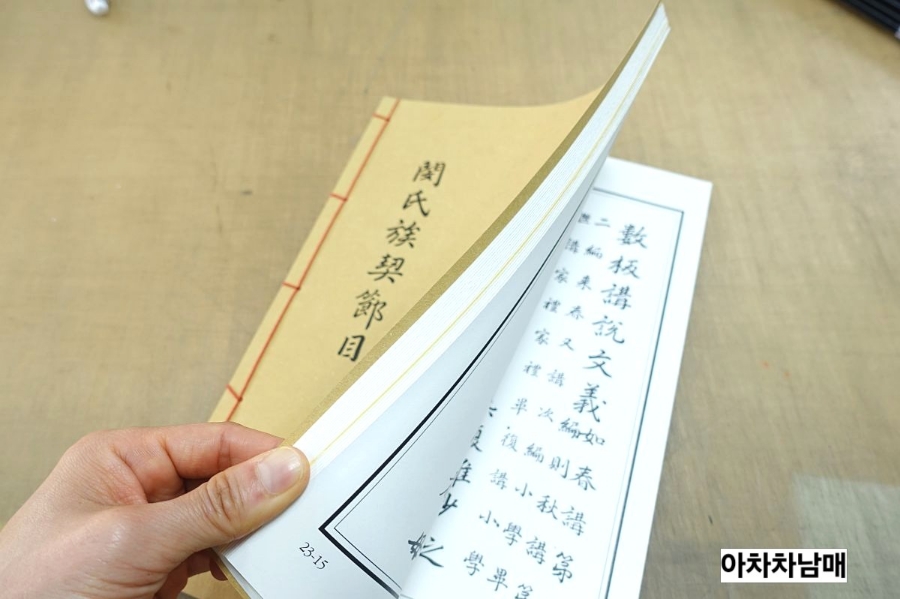 閔氏族契節目
數板講說文義
如春講第
編則秋講第
二編來春又講次編小學畢
講家禮家禮畢復講小學
23-15
아차차남매